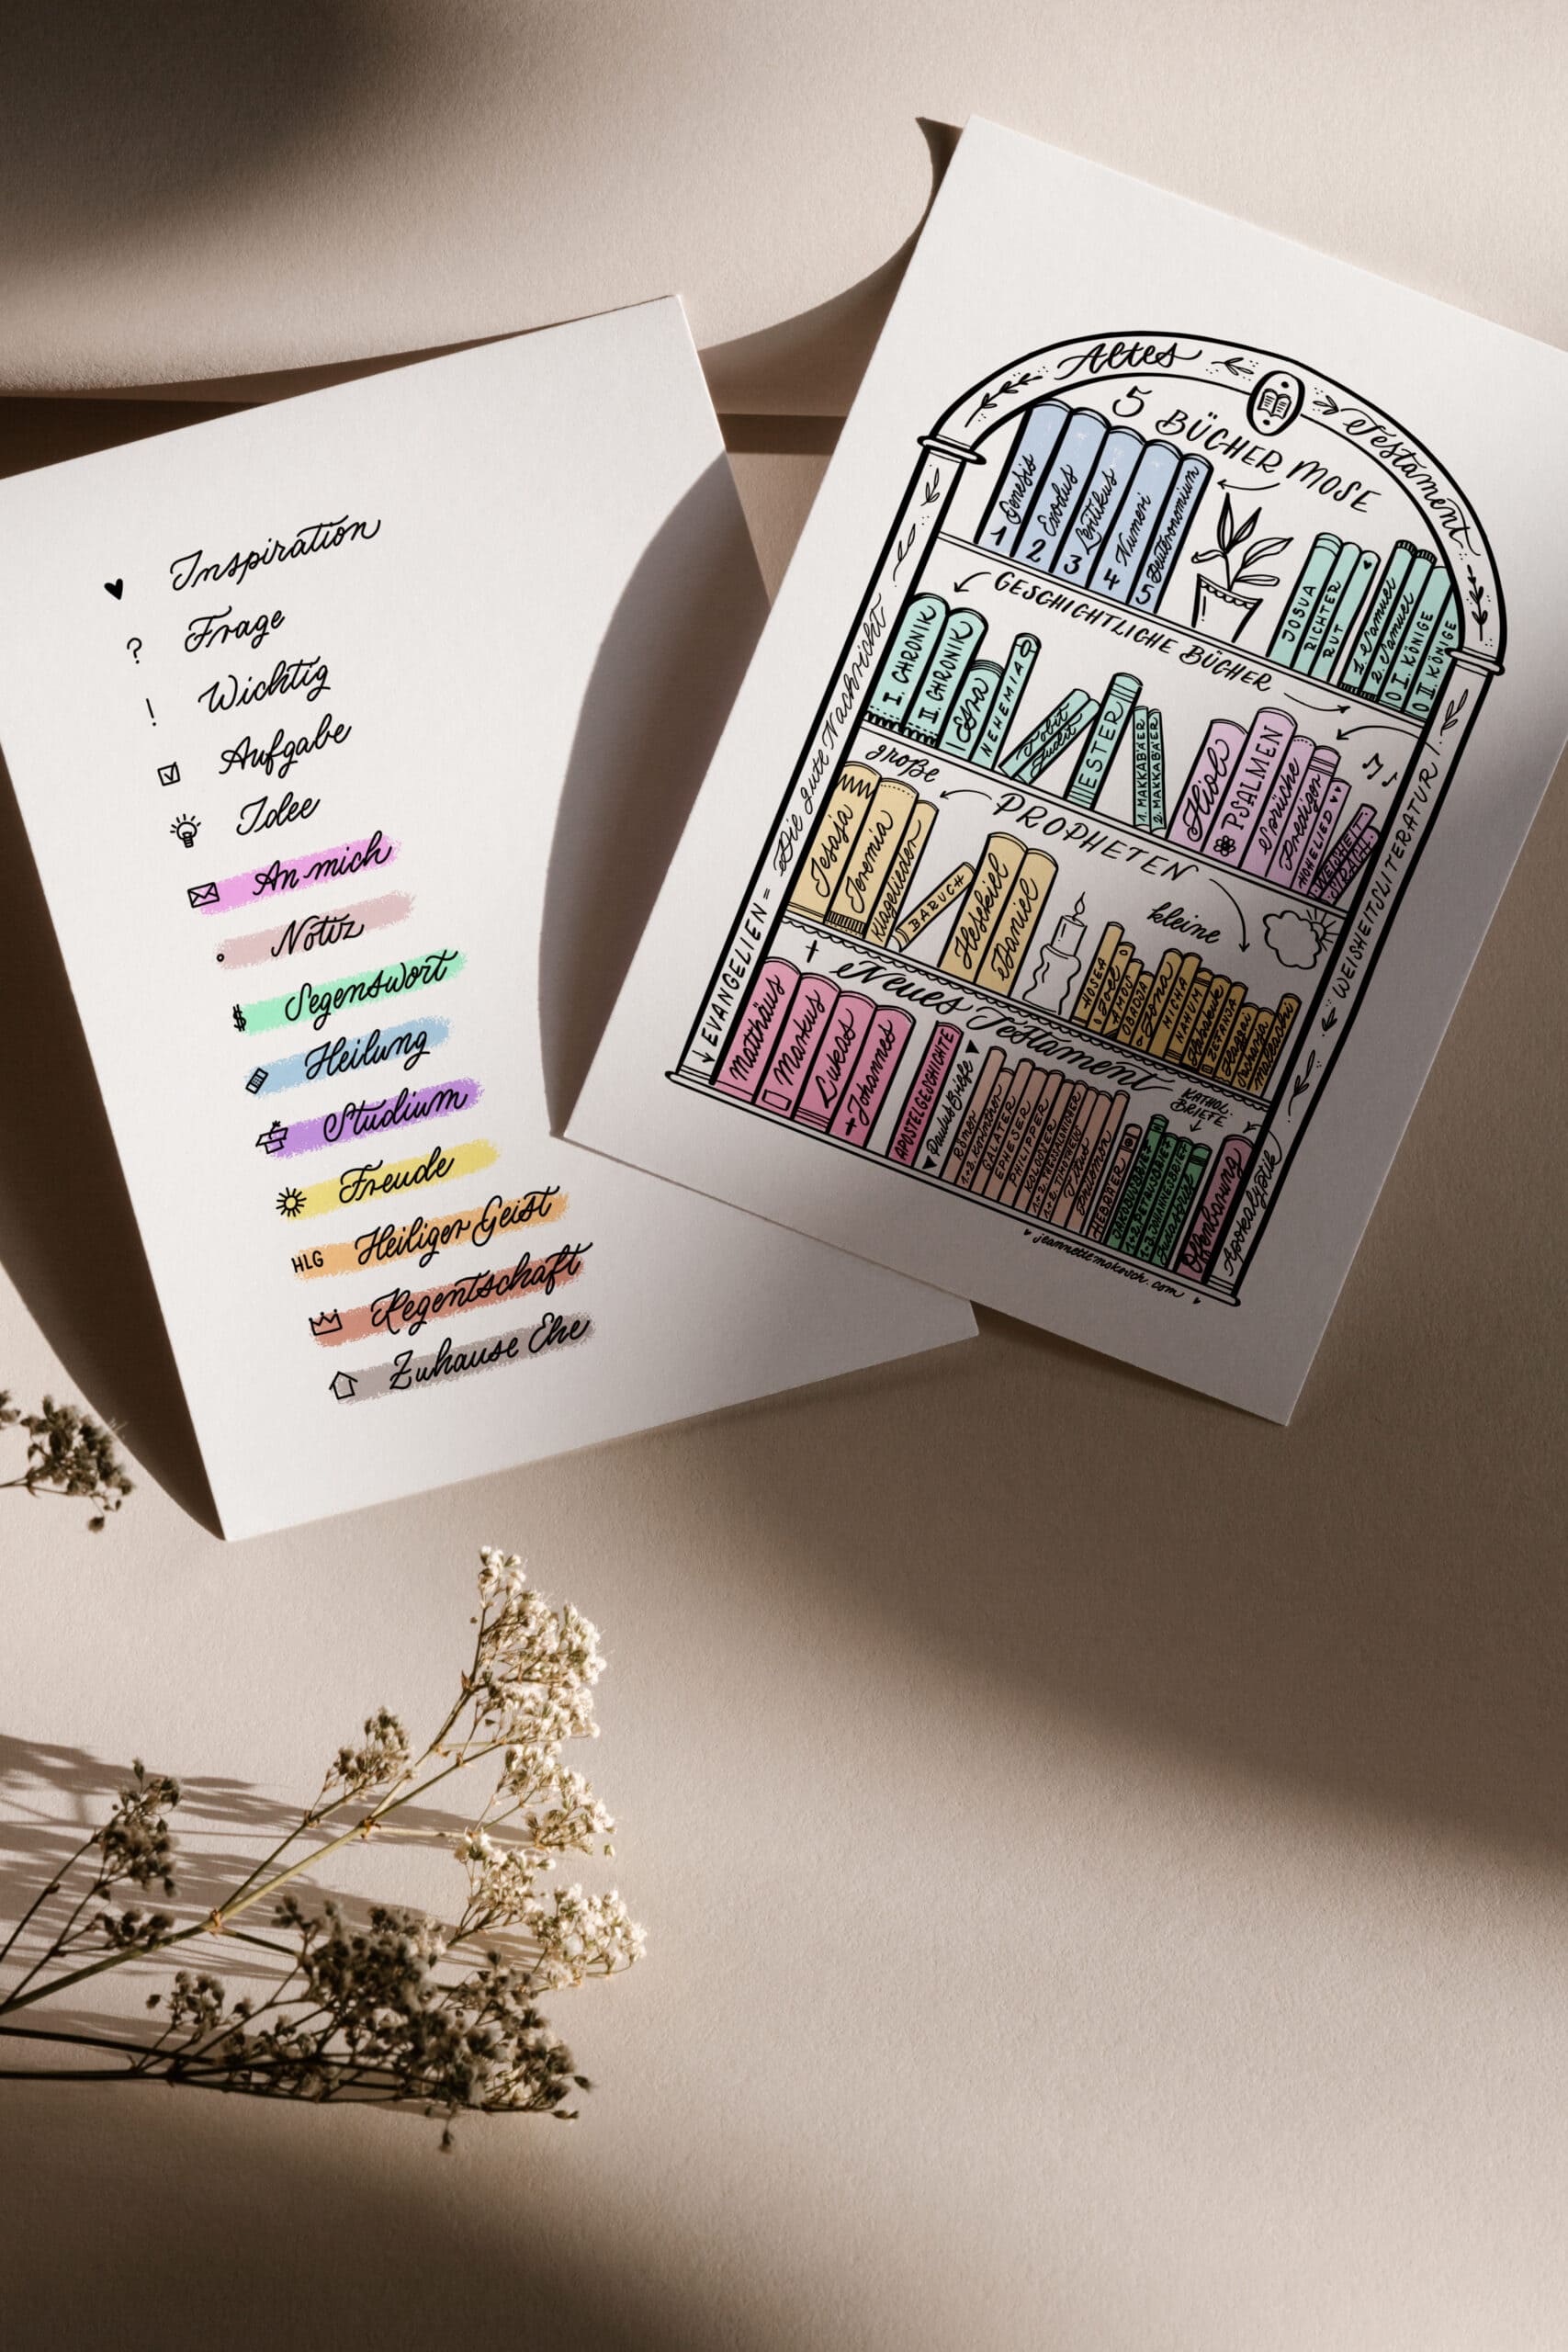 Inspiration
? Frage
! Wichtig
Aufgabe
Idee
An mich
Notiz
$ Segenswort
Heilung
Studium
Freude
HLG Heiliger Geist
Regentschaft
Zuhause Ehe
Altes Testament
5 BÜCHER MOSE
1 Genesis
2 Exodus
3 Levitikus
4 Numeri
5 Deuteronomium
JOSUA
RICHTER
RUT
1. Samuel
2. Samuel
I. KÖNIGE
II. KÖNIGE
GESCHICHTLICHE BÜCHER
I. CHRONIK
II. CHRONIK
Esra
NEHEMIA
Tobit
Judit
ESTER
1. MAKKABÄER
2. MAKKABÄER
Hiob
PSALMEN
Sprüche
Prediger
HOHELIED
WEISHEIT
SIRACH
WEISHEITSLITERATUR
große
PROPHETEN
kleine
Jesaja
Jeremia
Klagelieder
BARUCH
Hesekiel
Daniel
HOSEA
Joel
AMOS
OBADJA
Jona
MICHA
NAHUM
Habakuk
ZEFANJA
Haggai
Sacharja
Maleachi
Neues Testament
EVANGELIEN = Die gute Nachricht
Matthäus
Markus
Lukas
Johannes
APOSTELGESCHICHTE
Paulus Briefe
Römer
1.+2. Korinther
GALATER
EPHESER
PHILIPPER
KOLOSSER
1.+2. THESSALONICHER
1.+2. TIMOTHEUS
Titus
Philemon
HEBRÄER
KATHOL. BRIEFE
JAKOBUSBRIEF
1.+2. PETRUSBRIEF
1.-3. JOHANNESBRIEF
Judasbrief
Offenbarung
Apokalyptik
jeannettemokosch.com